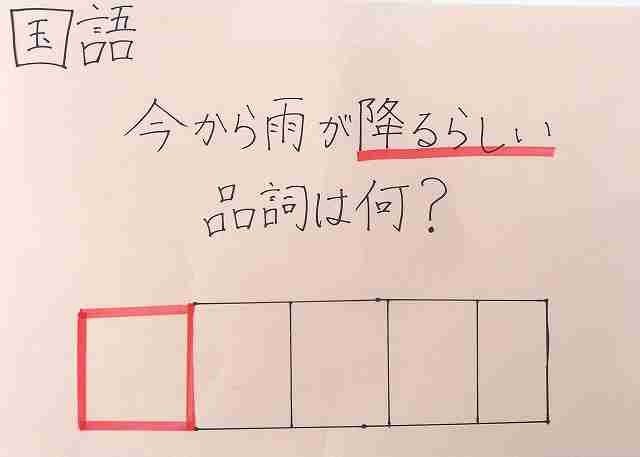 国語
今から雨が降るらしい
品詞は何?